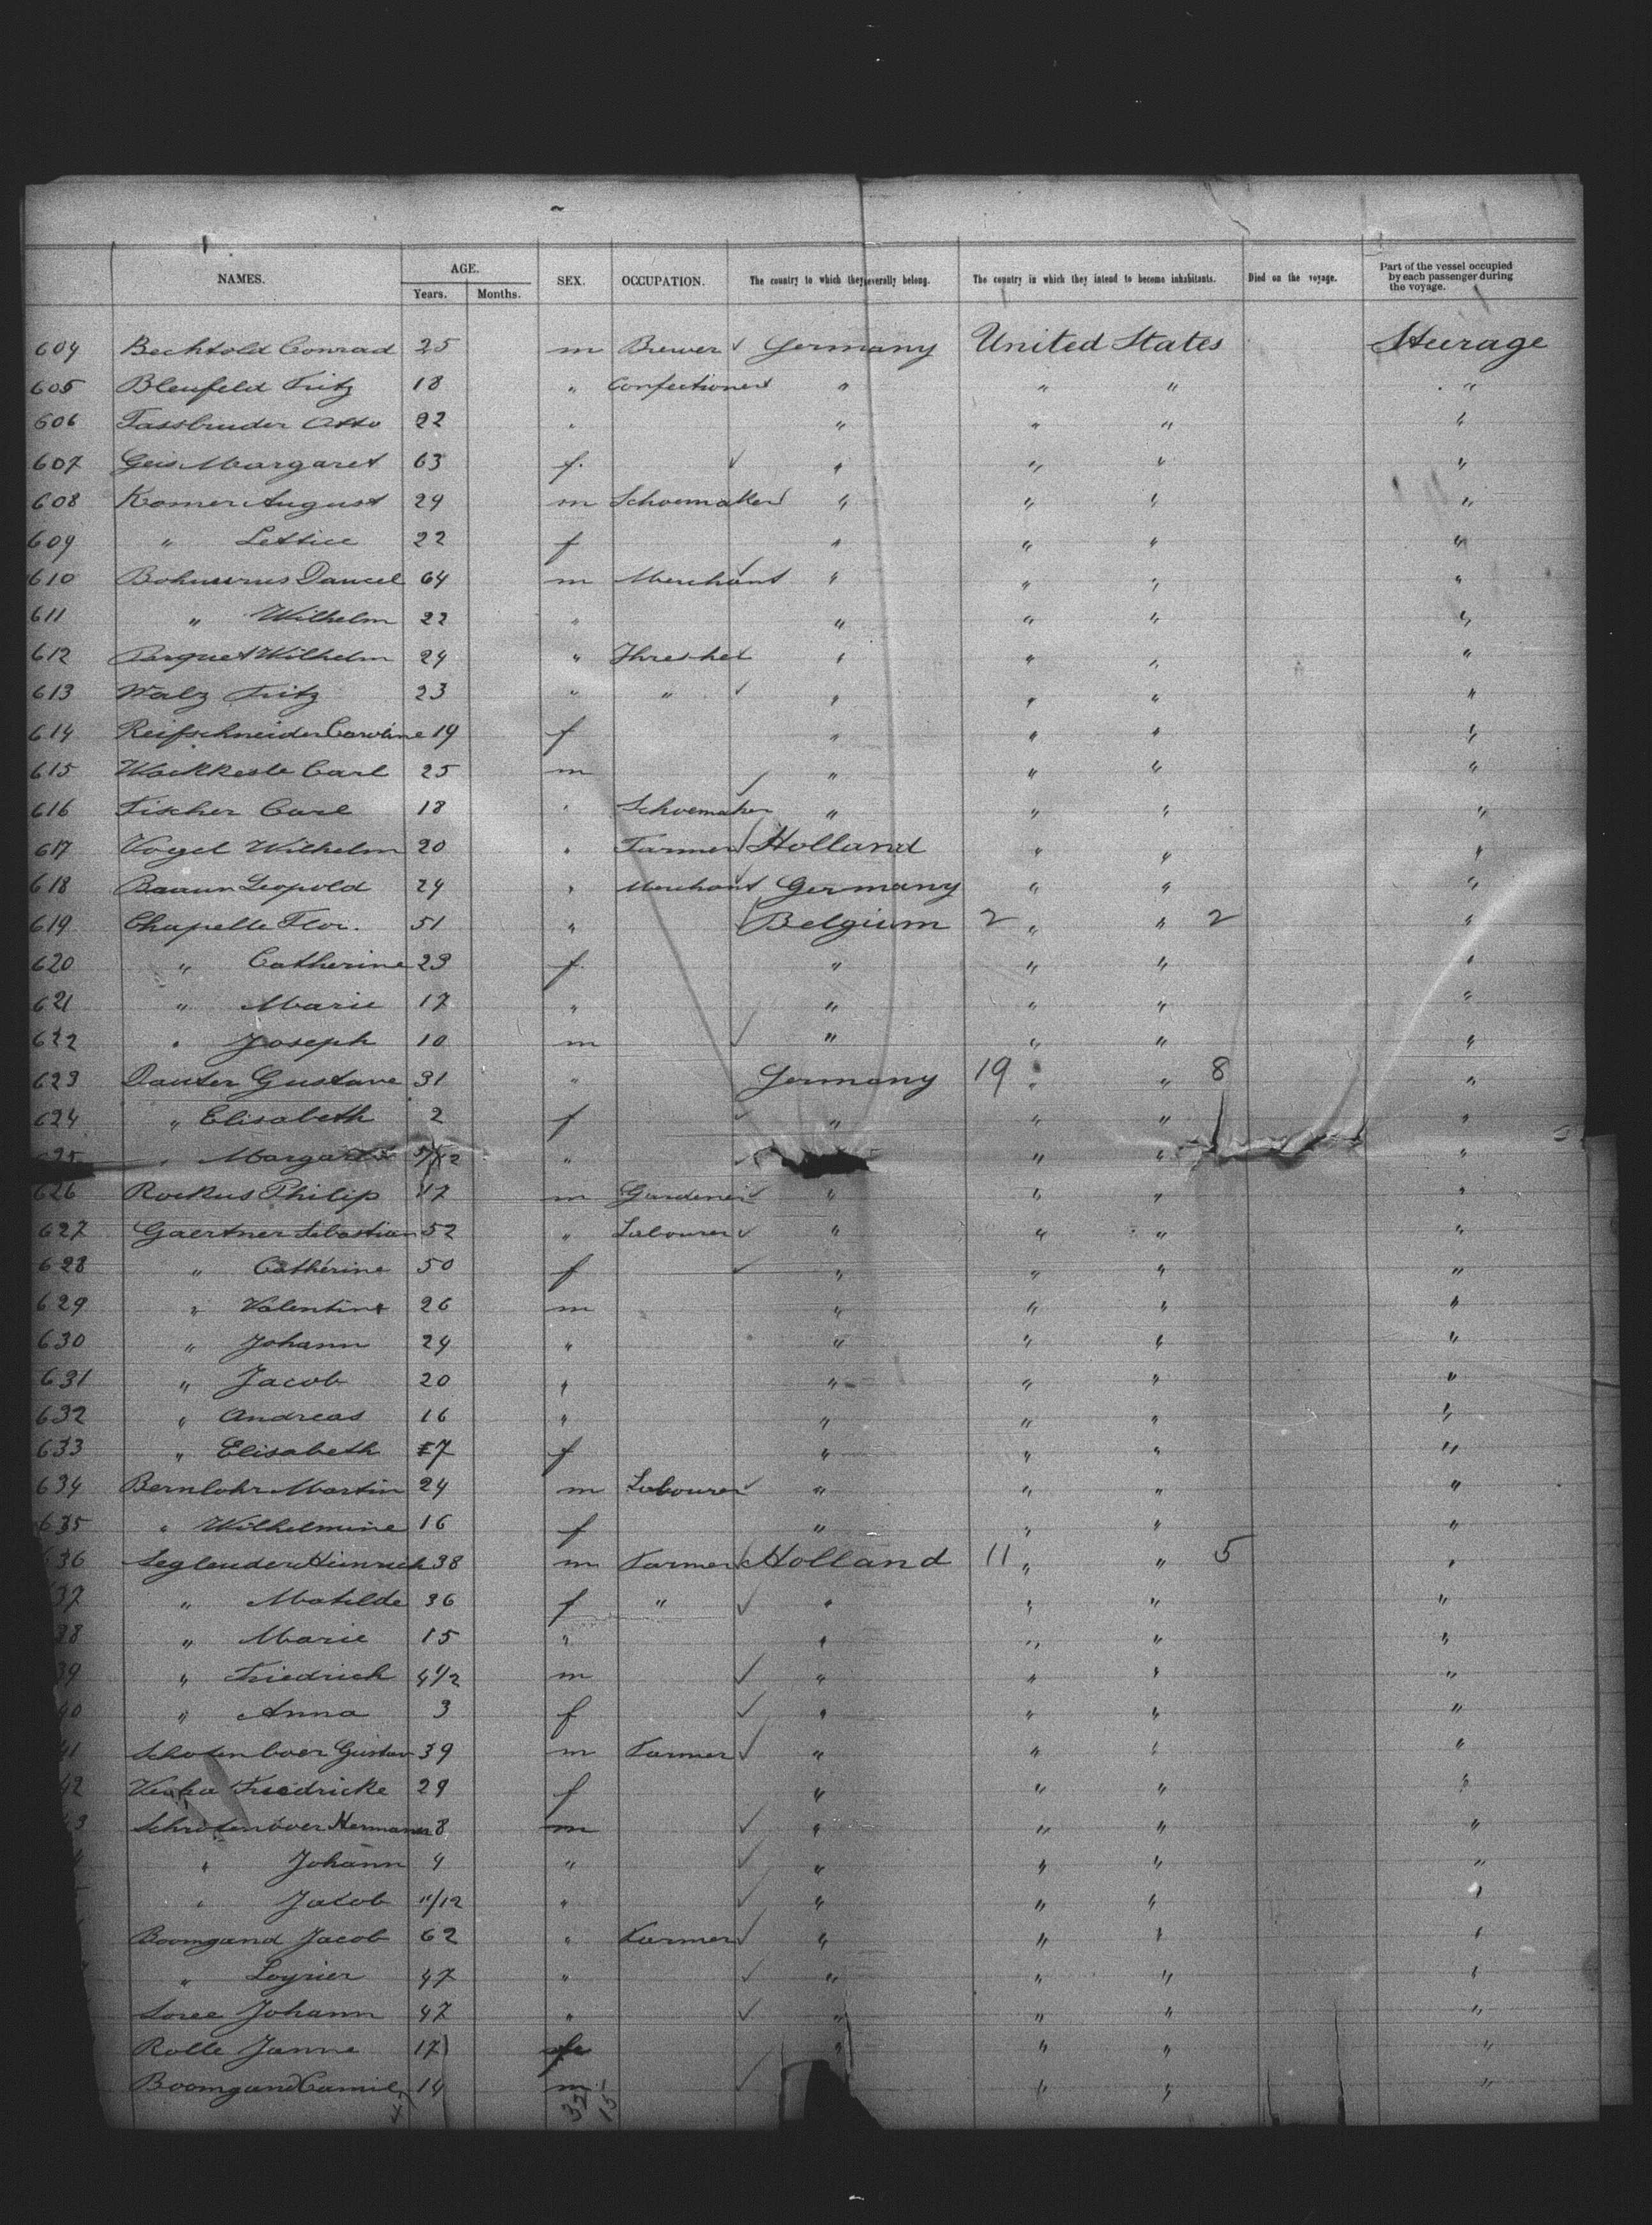 NAMES. AGE. Years. Months. SEX. OCCUPATION. The country to which they severally belong. The country in which they intend to become inhabitants. Died on the voyage. Part of the vessel occupied by each passenger during the voyage.
604 Bechtold Conrad 25 m Brewer Germany United States Steerage
605 Bleufeld Fritz 18 " Confectioner " " " "
606 Fassbruder Otto 22 " " " " "
607 Geis Margaret 63 f. " " " "
608 Komer August 24 m Schoemaker " " " "
609 " Lettice 22 f " " " "
610 Daniel 64 m Merchant " " " "
611 " Wilhelm 22 " " " " "
612 Parquet Wilhelm 24 " Thresher " " " "
613 Walz Fritz 23 " " " " " "
614 Reifschneider Caroline 19 f " " " "
615 Carl 25 m " " " "
616 Fischer Carl 18 " Schoemaker " " " "
617 Vogel Wilhelm 20 " Farmer Holland " " "
618 Braun Leopold 24 " Merchant Germany " " "
619 Chapelle Flor. 51 " Belgium 2 " " 2 "
620 " Catherine 23 f. " " " "
621 " Marie 17 " " " " "
622 " Joseph 10 m " " " "
623 Dauter Gustave 31 " Germany 19 " " 8 "
624 " Elisabeth 2 f " " " "
625 " Margaret " " " "
626 Rockus Philip 17 m Gardener " " " "
627 Gaertner Sebastian 52 " Labourer " " " "
628 " Catherine 50 f " " " "
629 " Valentine 26 m " " " "
630 " Johann 24 " " " " "
631 " Jacob 20 " " " " "
632 " Andreas 16 " " " " "
633 " Elisabeth 7 f " " " "
634 Bernlohr Martin 24 m Labourer " " " "
635 " Wilhelmine 16 f " " " "
636 Seglender Heinrich 38 m Farmer Holland 11 " " 5 "
37 " Matilde 36 f " " " " "
38 " Marie 15 " " " " "
39 " Friedrich 4 1/2 m " " " "
40 " Anna 3 f " " " "
41 Schotenboer Gustav 39 m Farmer " " " "
42 Friedricke 29 f " " " "
3 Schrotenboer Hermann 8 m " " " "
" Johann 4 " " " " "
" Jacob 11/12 " " " " "
Boomgand Jacob 62 " Farmer " " " "
" Loyrier 47 " " " " "
Soree Johann 47 " " " " "
Rolle Janne 17 " " " "
Boomgand Camil 14 m " " "
32 15